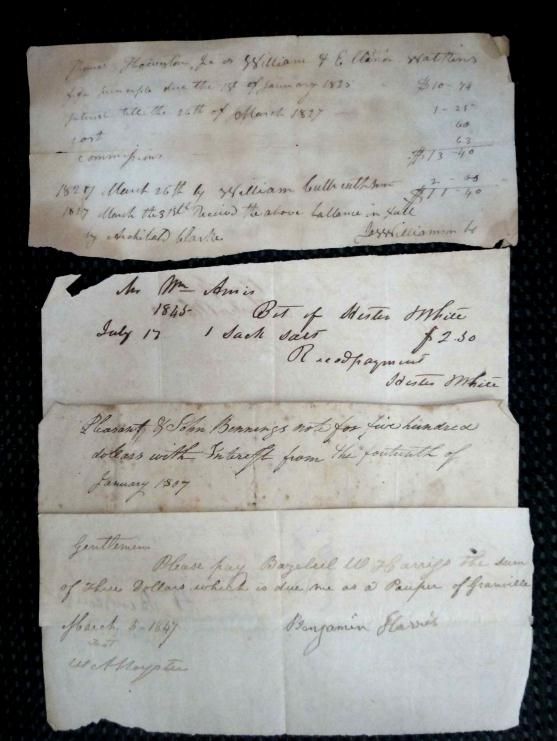 Jr or William & E Watkins
principle due the 1st of January 1825 $10-74
till the 26th of March 1827 1-25
cost 60
commissions 63
$13-40
1827 March 26th by William 2-00
$11-40
1827 March the 31st Received the above ballance in full
by Archibald Clarke JWilliamson
Mr Wm Amis
1845 Bot of Hester White
July 17 1 Sack salt $2.50
Recd payment
Hester White
Pleasant & John Bennings note for five hundred
dollars with Interest from the fourteenth of
January 1807
Gentlemen
Please pay Bazeleel W Harriss the sum
of Three Dollars which is due me as a Pauper of Granville
March 5-1847 Benjamin Harris
Test